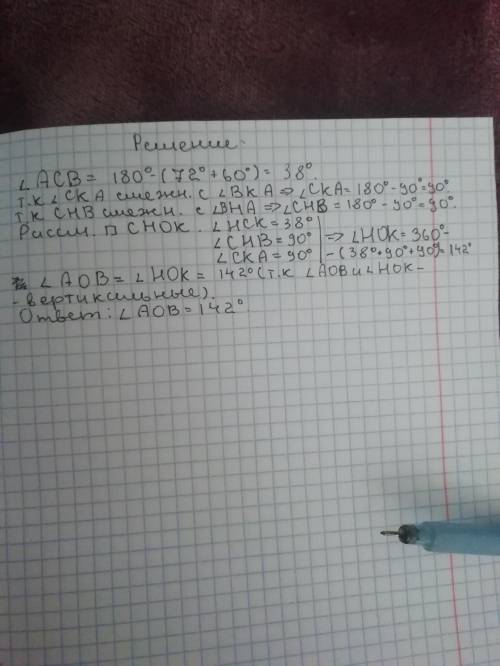 Решение:
∠ACB = 180°-(72°+60°)= 38°.
т.к ∠CKA смежн. с ∠BKA ⇒ ∠CKA= 180°-90°=90°.
т.к CHB смежн. с ∠BHA ⇒ ∠CHB = 180°-90°=90°.
Рассм. □ CHOK. ∠HCK = 38°
∠CHB = 90° ⇒ ∠HOK = 360°-
∠CKA = 90° -(38°+90°+90°)= 142°
∠AOB = ∠HOK = 142° (т.к ∠AOB и ∠HOK -
- вертиксильные).
Ответ: ∠AOB = 142°.